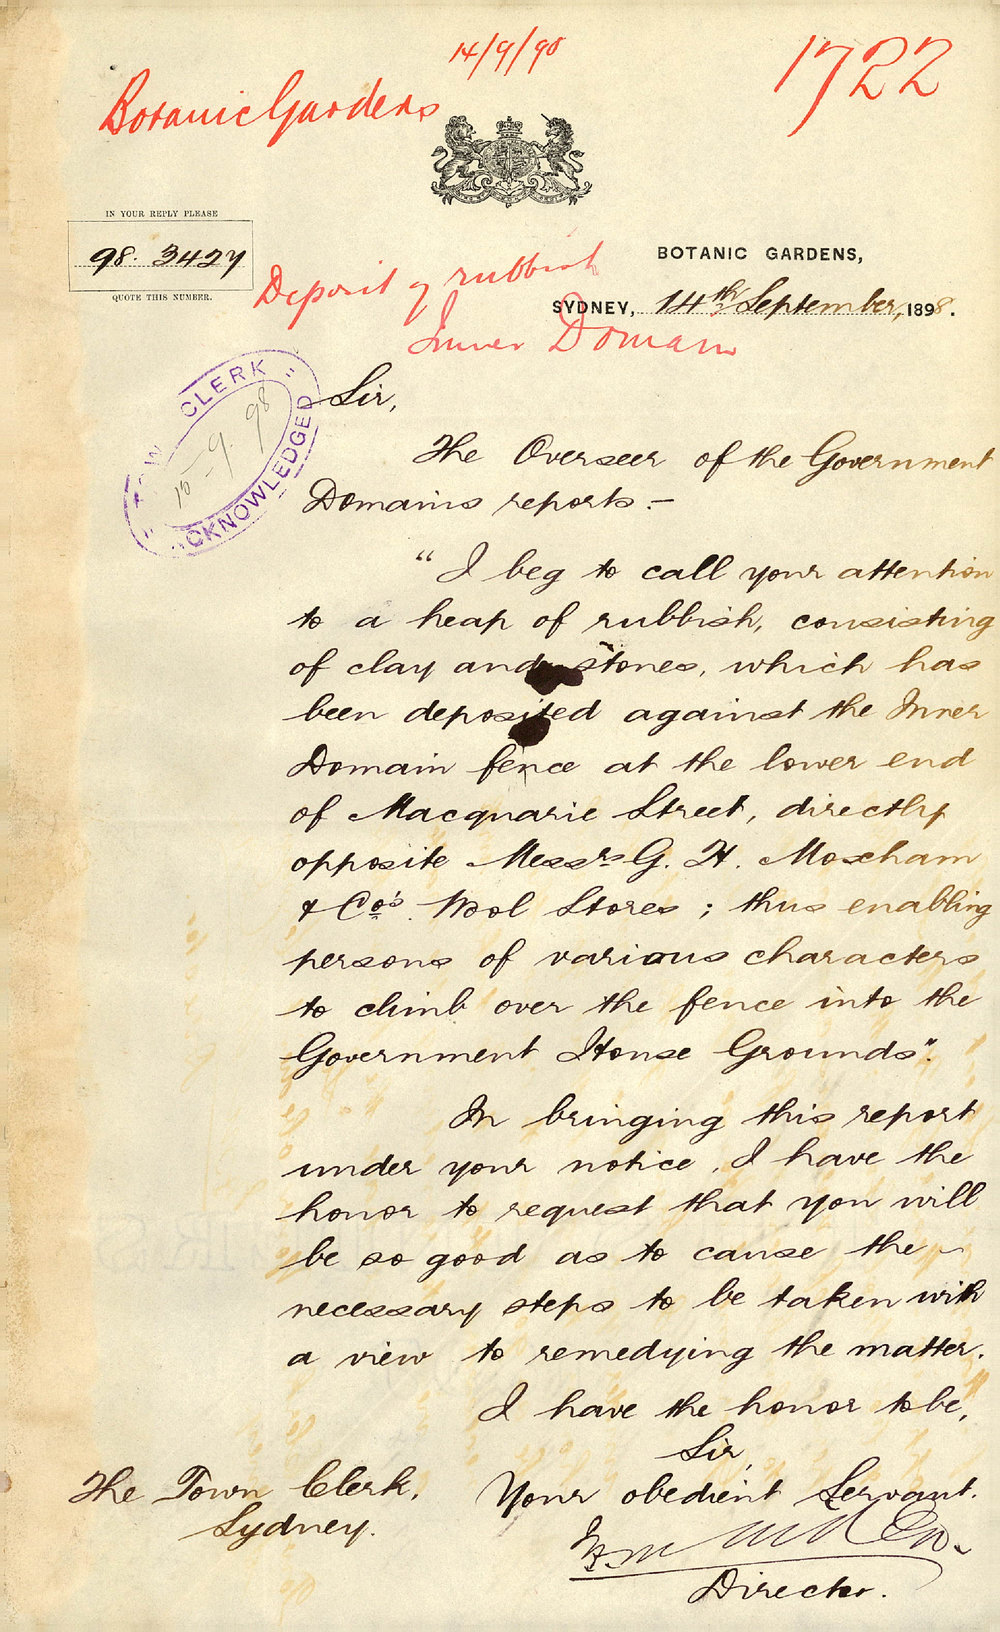 14/9/98
1722
Botanic Gardens
IN YOUR REPLY PLEASE
98. 3427
QUOTE THIS NUMBER.
BOTANIC GARDENS,
Deposit of rubbish
SYDNEY, 14th September, 1898.
Inner Domain
TOWN CLERK
15-9-98
ACKNOWLEDGED
Sir,
The Overseer of the Government
Domains reports:—
"I beg to call your attention
to a heap of rubbish, consisting
of clay and stones, which has
been deposited against the Inner
Domain fence at the lower end
of Macquarie Street, directly
opposite Messrs G. H. Moxham
& Co's. Wool Stores; thus enabling
persons of various characters
to climb over the fence into the
Government House Grounds".
In bringing this report
under your notice, I have the
honor to request that you will
be so good as to cause the
necessary steps to be taken with
a view to remedying the matter.
I have the honor to be,
Sir,
Your obedient Servant.
Director.
The Town Clerk,
Sydney.